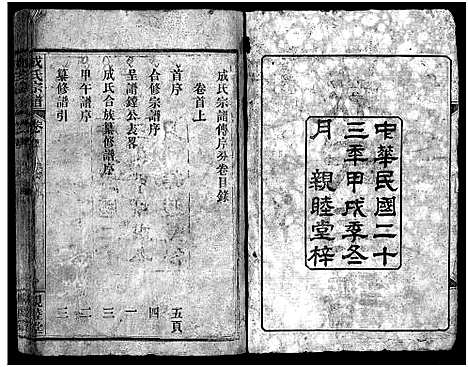 中華民國二十
三年甲戌季冬
月 親睦堂梓
成氏宗譜傳序分卷目錄
卷首上
首序 五頁
合修宗譜序 四
呈譜鏗公表畧 一
成氏合族纂修譜序 三
甲午譜序 二
纂修譜引 三
成氏宗譜